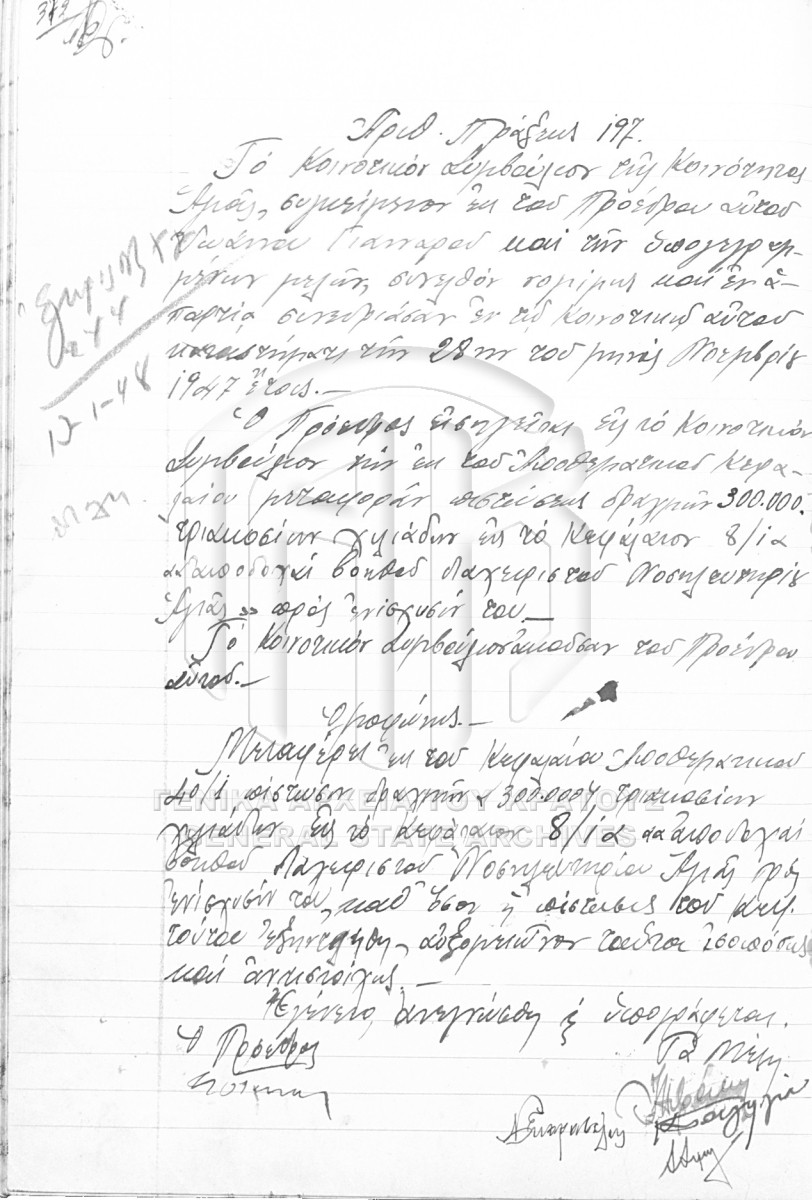 Αριθ. Πράξεως 197.
Τό Κοινοτικόν Συμβούλιον τῆς Κοινότητος
Ἁγιᾶς, συγκείμενον ἐκ τοῦ Προέδρου αὐτοῦ
Ἰωάννου Γιανναροῦ καί τῶν ὑπογεγραμ-
μένων μελῶν, συνελθόν νομίμως καί ἐν ἀ-
παρτίᾳ συνεδρίασαν ἐν τῷ Κοινοτικῷ αὐτοῦ
καταστήματι τήν 28ην τοῦ μηνός Νοεμβρίου
1947 ἔτους.—
Ὁ Πρόεδρος εἰσηγεῖται εἰς τό Κοινοτικόν
Συμβούλιον τήν ἐκ τοῦ Ἀποθεματικοῦ Κεφα-
λαίου μεταφοράν πιστώσεως δραχμῶν 300.000.
τριακοσίων χιλιάδων εἰς τό Κεφάλαιον 8/ια
«ἀποδοχαί βοηθοῦ διαχειριστοῦ Νοσηλευτηρίου
Ἁγιᾶς» πρός ἐνίσχυσίν του.—
Τό Κοινοτικόν Συμβούλιον ἀκούσαν τοῦ Προέδρου
αὐτοῦ.—
Ὁμοφώνως.—
Μεταφέρει ἐκ τοῦ Κεφαλαίου Ἀποθεματικοῦ
40/1 πίστωσιν δραχμῶν 300.000 τριακοσίων
χιλιάδων εἰς τό Κεφάλαιον 8/ια «ἀποδοχαί
βοηθοῦ διαχειριστοῦ Νοσηλευτηρίου Ἁγιᾶς πρός
ἐνίσχυσίν του, καθ' ὅσον ἡ πίστωσις τοῦ
τούτου ἐξηντλήθη, αὐξομειῶνον ταῦτα ἰσοπόσως
καί ἀντιστοίχως.—
Ἐγένετο, ἀνεγνώσθη & ὑπογράφεται.
Ὁ Πρόεδρος
Τά Μέλη
13-1-48
ΓΕΝΙΚΑ ΑΡΧΕΙΑ ΤΟΥ ΚΡΑΤΟΥΣ
GENERAL STATE ARCHIVES